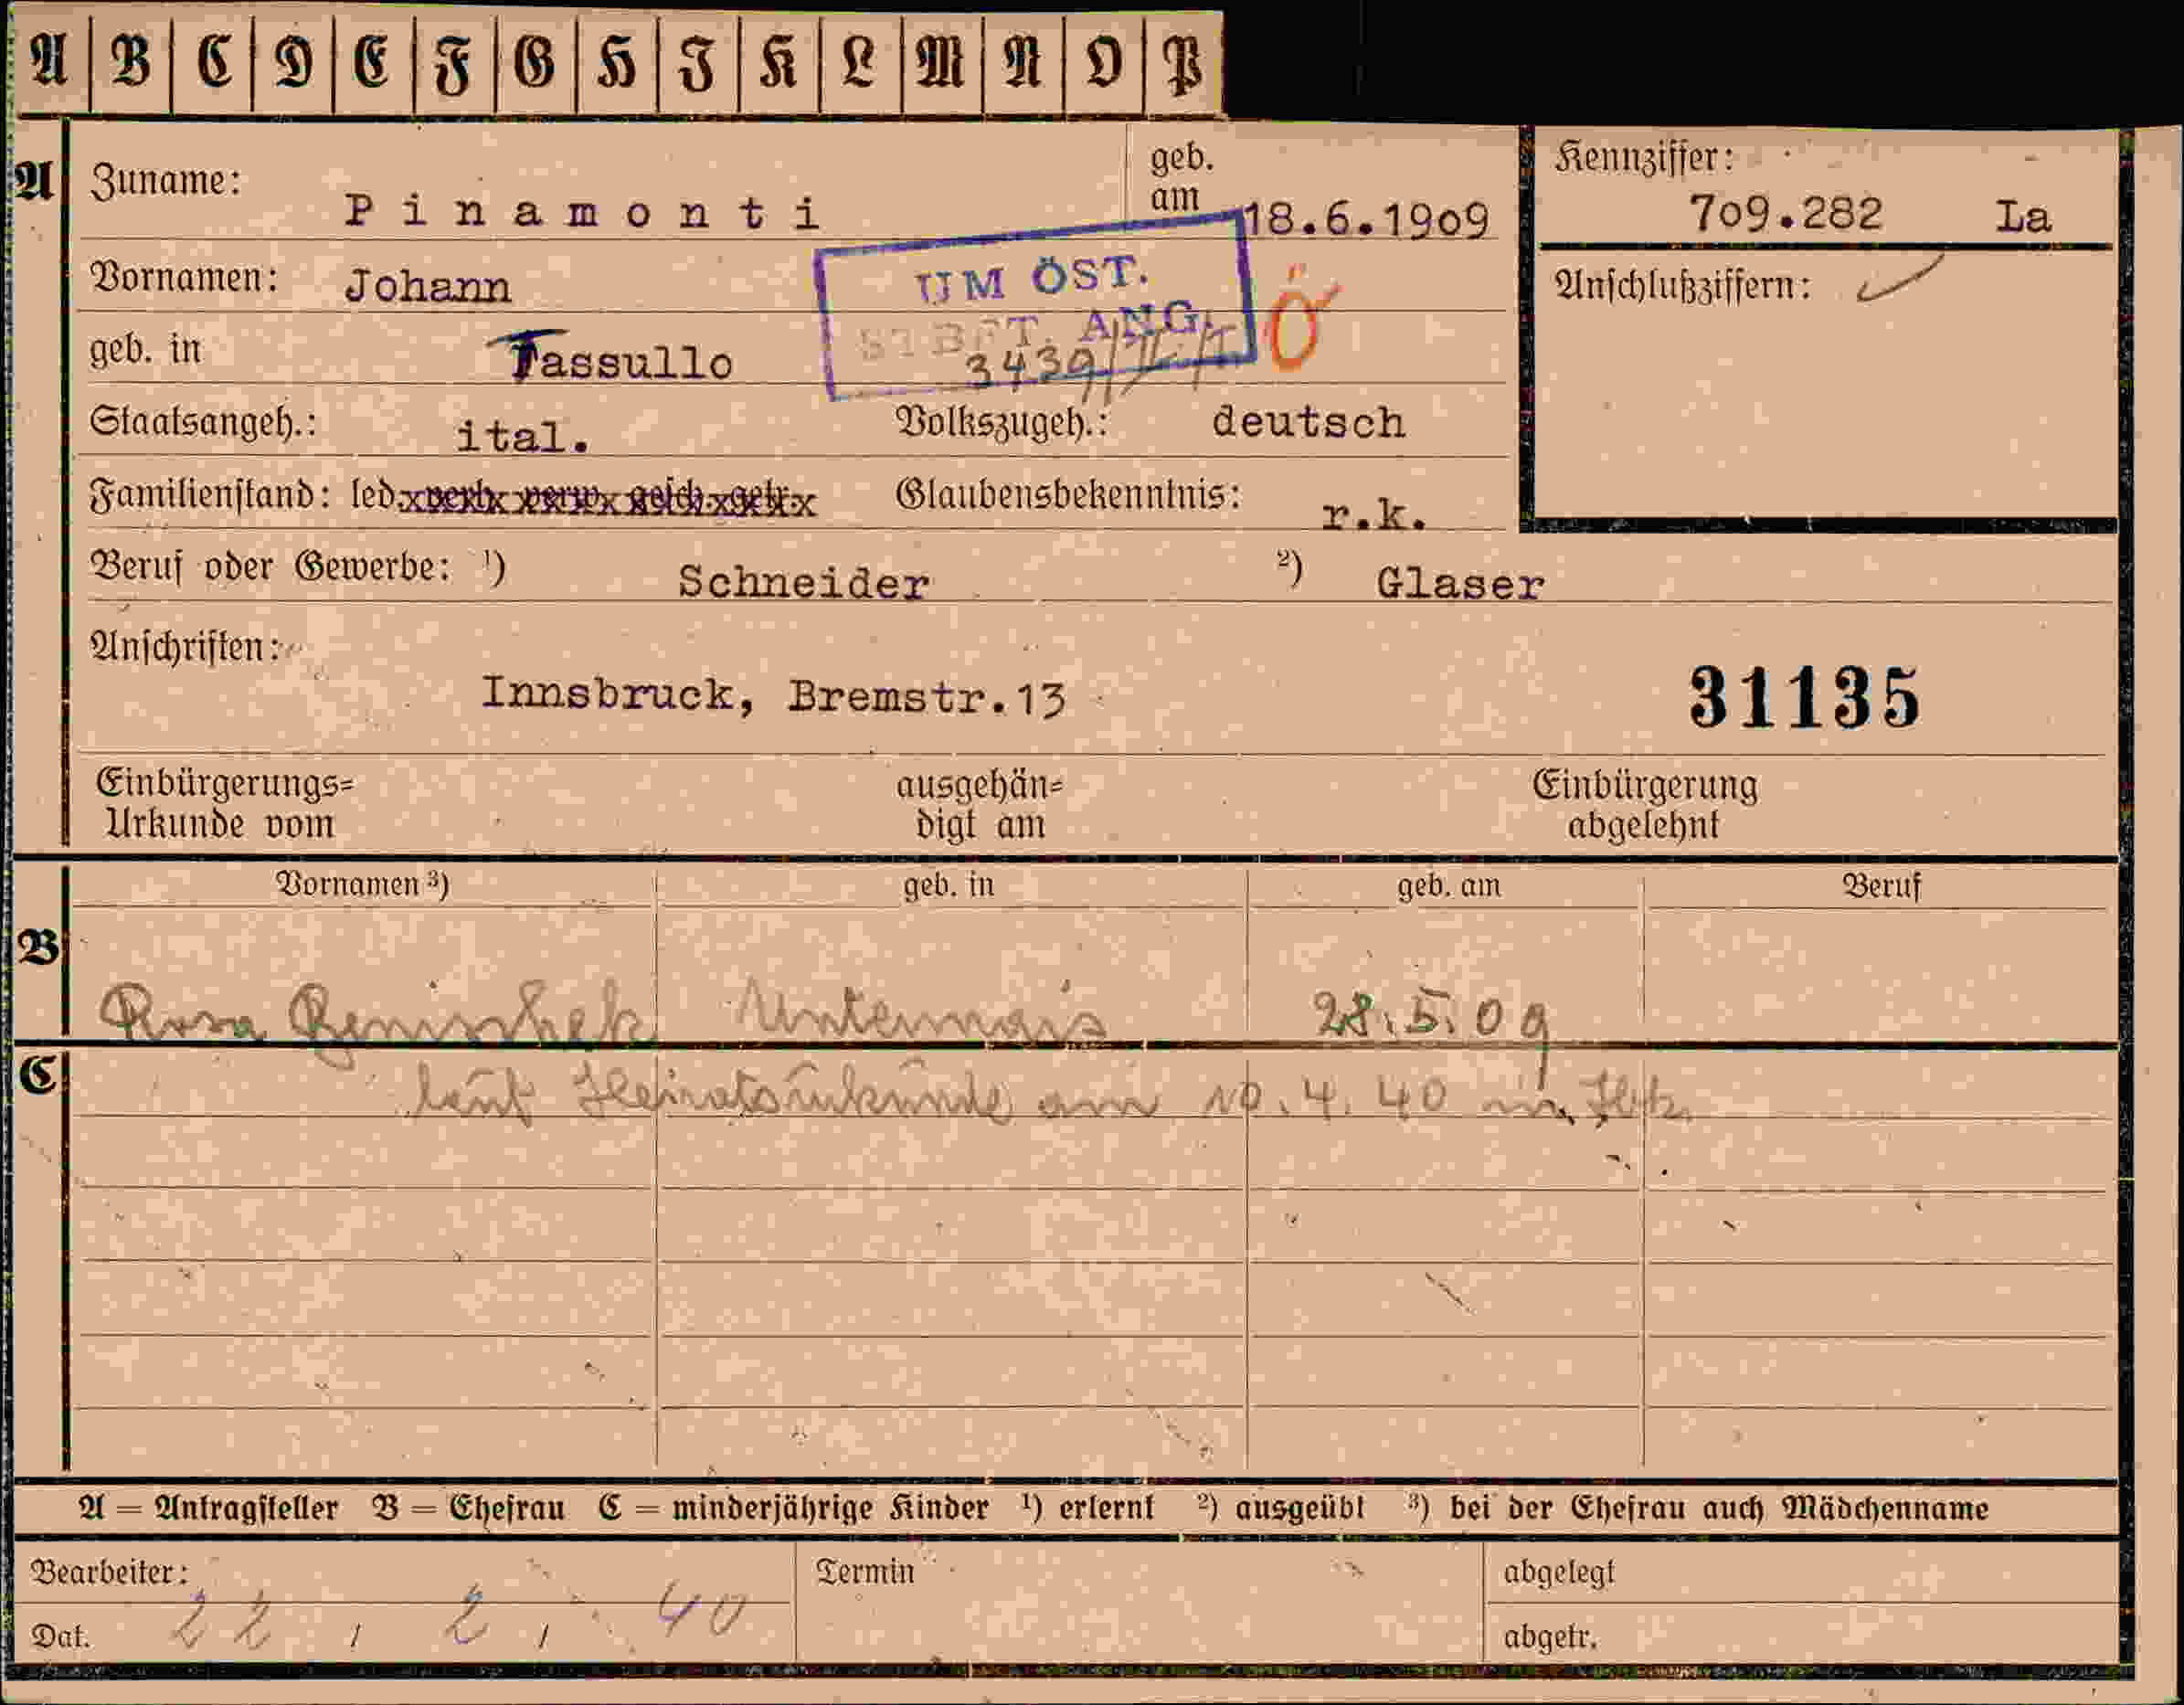 A B C D E F G H I K L M N O P
A
Zuname: Pinamonti
geb. am 18.6.1909
Kennziffer: 709.282 La
Vornamen: Johann
UM ÖST.
STBFT. ANG.
3439/II/1
Ö
Anschlußziffern:
geb. in Tassullo
Staatsangeh.: ital. Volkszugeh.: deutsch
Familienstand: led. verh. verw. gesch. getr. Glaubensbekenntnis: r.k.
Beruf oder Gewerbe: ¹) Schneider ²) Glaser
Anschriften:
Innsbruck, Bremstr.13
31135
Einbürgerungs=
Urkunde vom
ausgehän=
digt am
Einbürgerung
abgelehnt
Vornamen ³) geb. in geb. am Beruf
B
Rosa Untermais 28.5.09
C
laut Heiratsurkunde am 10.4.40 in Ibk.
A = Antragsteller B = Ehefrau C = minderjährige Kinder ¹) erlernt ²) ausgeübt ³) bei der Ehefrau auch Mädchenname
Bearbeiter: Termin abgelegt
Dat. 22. 2. 40 abgetr.